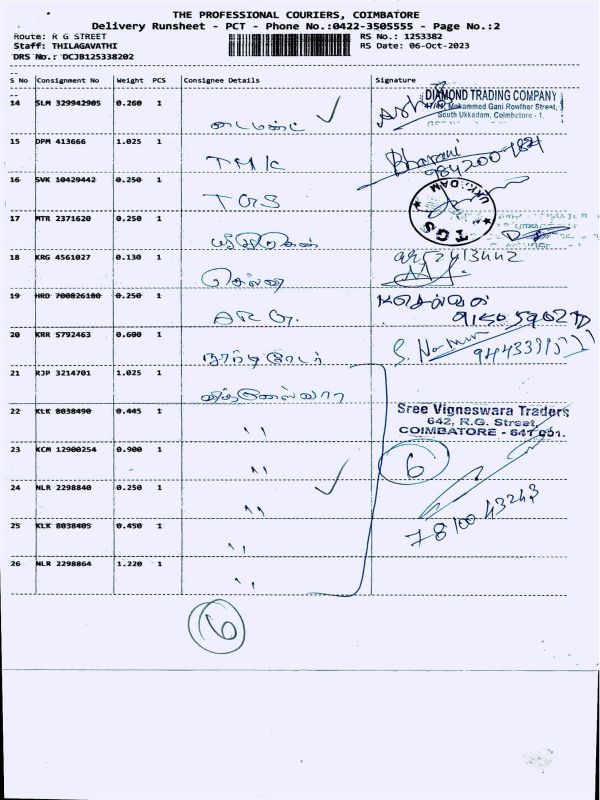 THE PROFESSIONAL COURIERS, COIMBATORE
Delivery Runsheet - PCT - Phone No.:0422-3505555 - Page No.:2
Route: R G STREET
Staff: THILAGAVATHI
DRS No.: DCJB125338202
RS No.: 1253382
RS Date: 06-Oct-2023
S No Consignment No Weight PCS Consignee Details Signature
14 SLM 329942905 0.260 1 டைமண்ட்
DIAMOND TRADING COMPANY
Mohammed Gani Rowther Street,
South Ukkadam, Coimbatore - 1.
15 DPM 413666 1.025 1 TMK Bharani
16 SVK 10429442 0.250 1 TGS
UKKADAM
TGS
17 MTR 2371620 0.250 1
18 KRG 4561027 0.130 1 செல்வ
19 HRD 700026180 0.250 1 ARG.
20 KRR 5792463 0.600 1
21 RJP 3214701 1.025 1
22 KLK 8038490 0.445 1 ''
Sree Vigneswara Traders
642, R.G. Street,
COIMBATORE - 641 001.
23 KCM 12900254 0.900 1 ''
6
24 NLR 2298840 0.250 1 ''
78100 43243
25 KLK 8038405 0.450 1 ''
26 NLR 2298864 1.220 1 ''
6